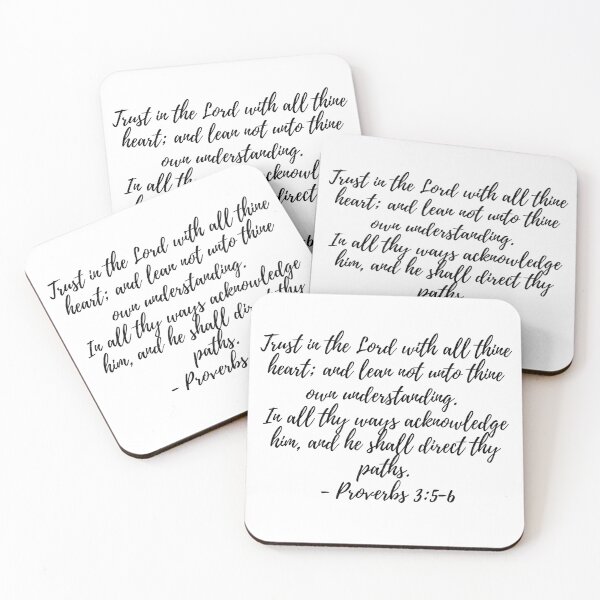 Trust in the Lord with all thine
heart; and lean not unto thine
own understanding.
In all acknowledge
direct
Trust in the Lord with all thine
heart; and lean not unto thine
own understanding.
In all thy ways acknowledge
him, and he shall direct thy
paths.
Trust in the Lord with all thine
heart; and lean not unto thine
own understanding.
In all thy ways acknowledge
him, and he shall thy
paths.
- Proverbs
Trust in the Lord with all thine
heart; and lean not unto thine
own understanding.
In all thy ways acknowledge
him, and he shall direct thy
paths.
- Proverbs 3:5-6